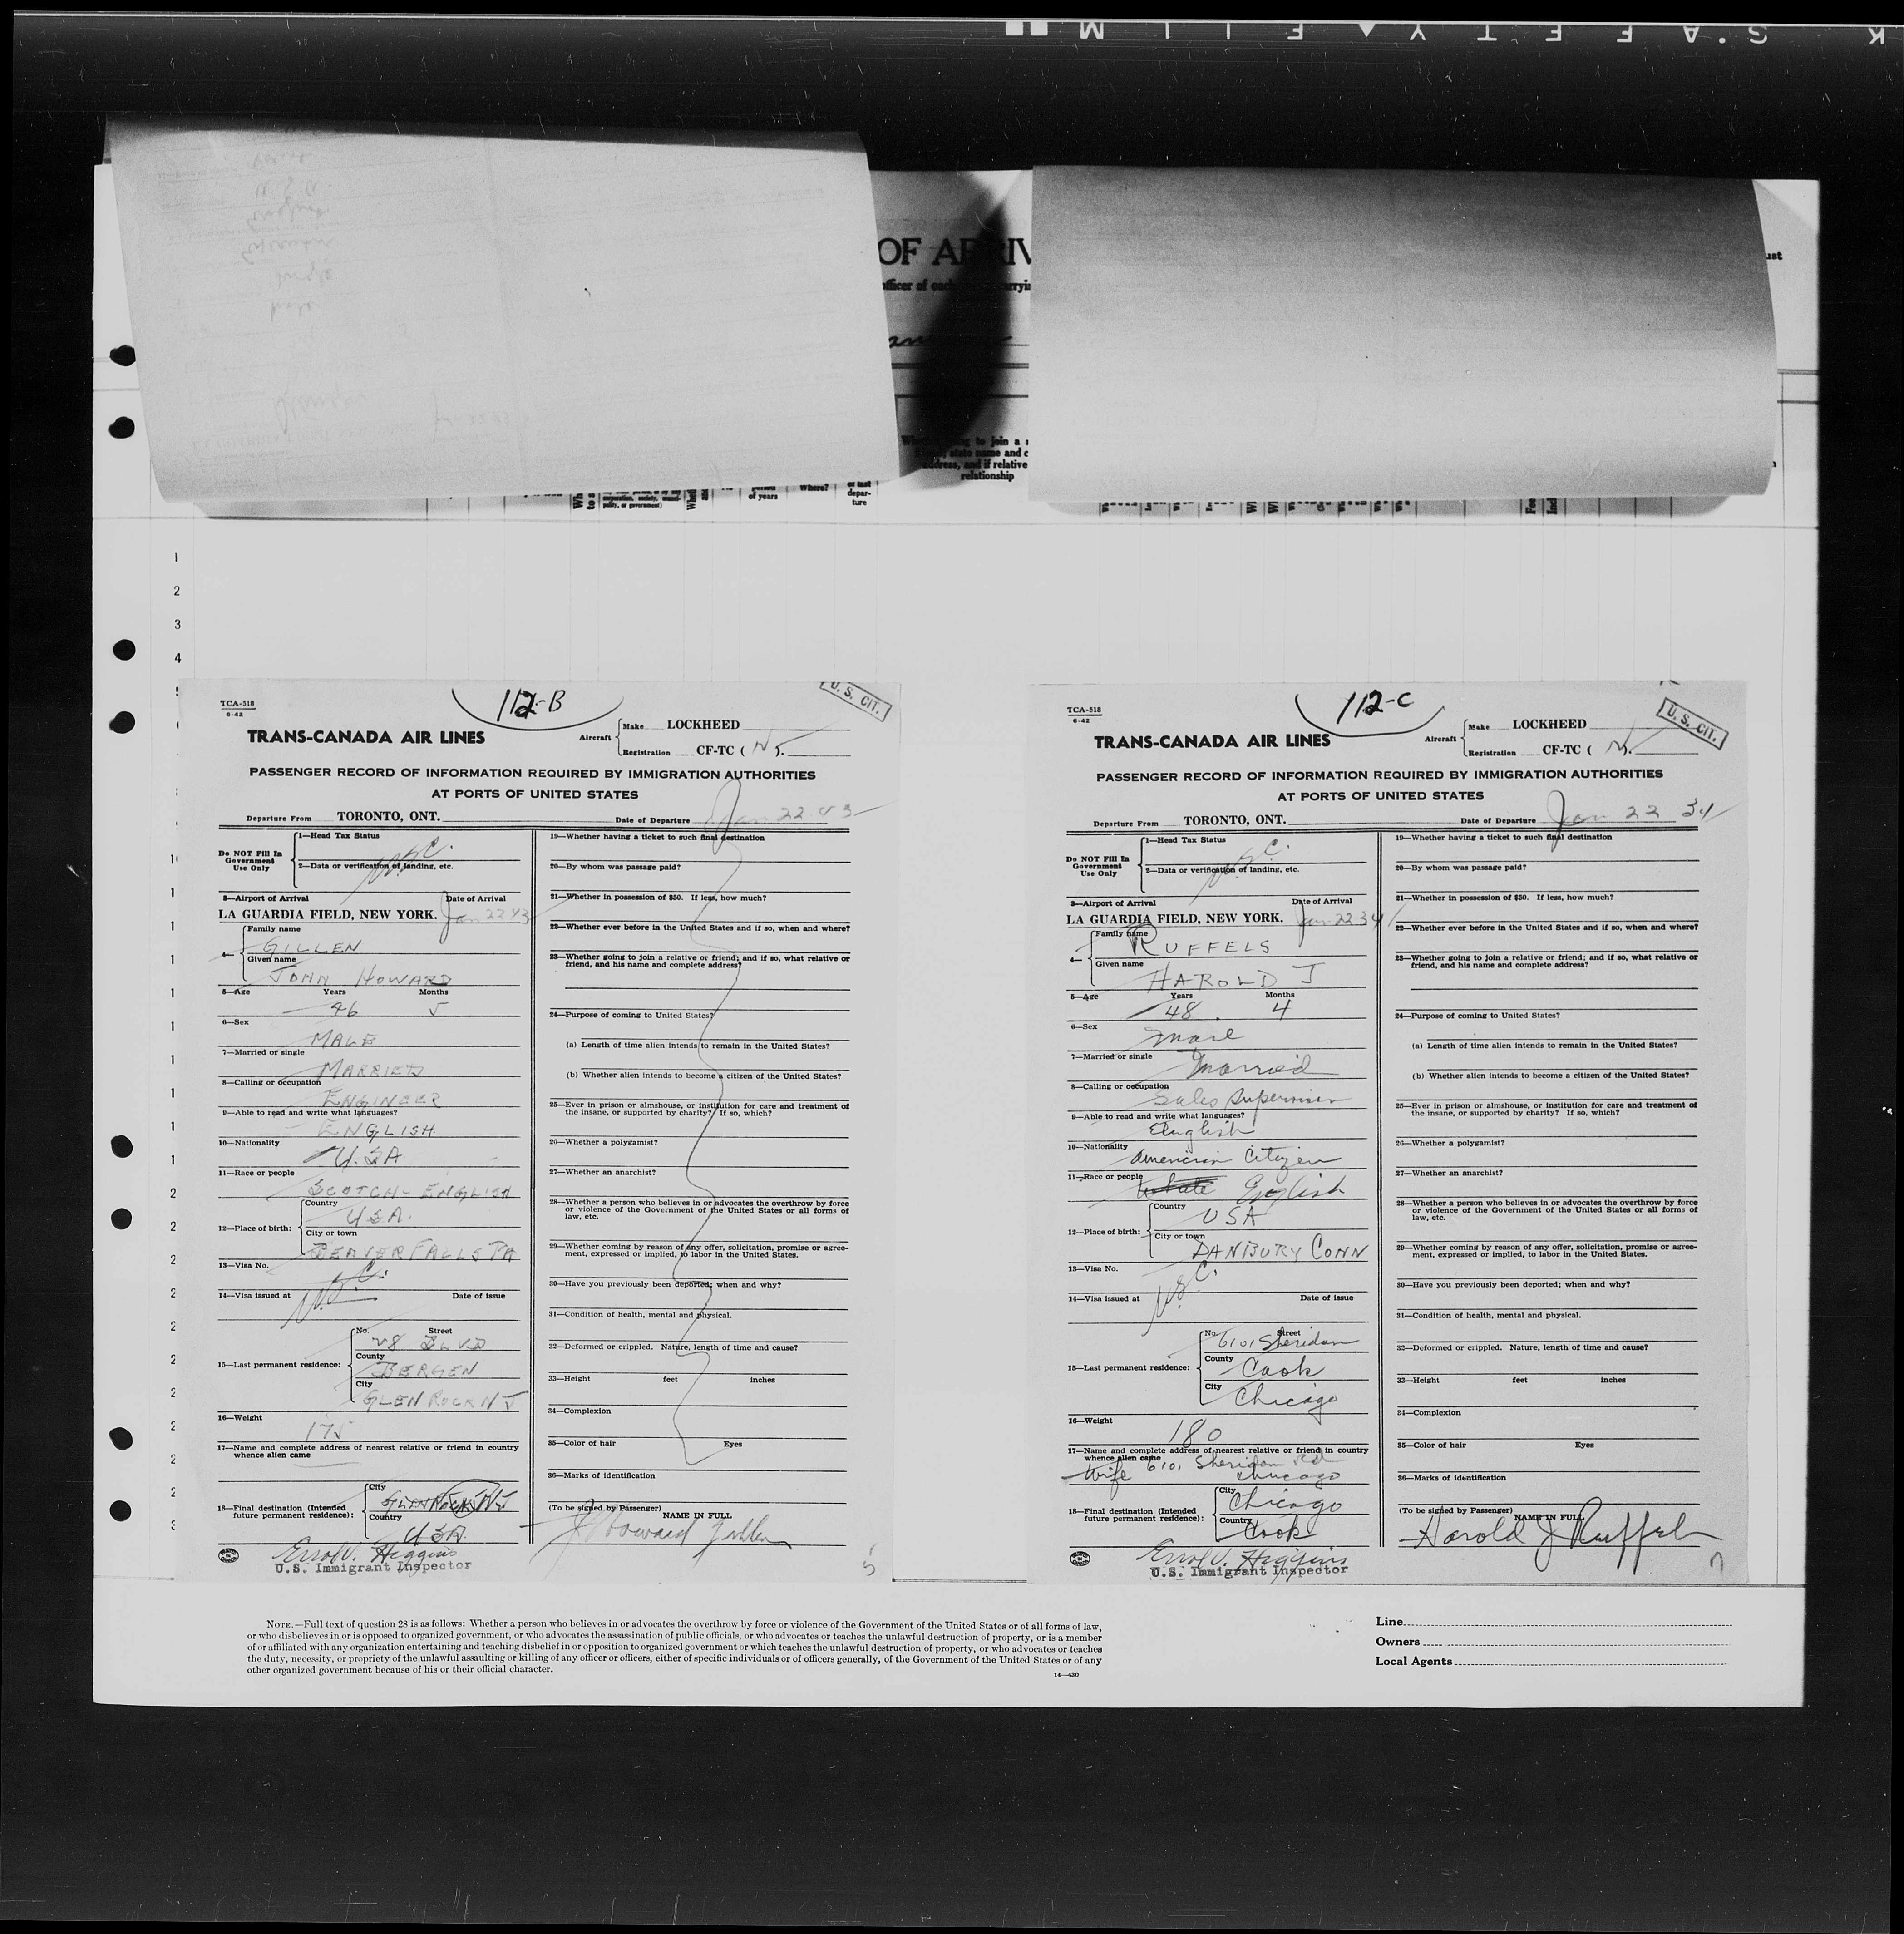 SAFETY FILM
OF ARRIV
officer of each
arryin
ust
to join a
state name and
address, and if relative
relationship
of years
Where?
or last
depar-
ture
1
2
3
4
TCA-518
6-42
112-B
U. S. CIT.
TRANS-CANADA AIR LINES
Aircraft
Make LOCKHEED
Registration CF-TC ( N ).
PASSENGER RECORD OF INFORMATION REQUIRED BY IMMIGRATION AUTHORITIES
AT PORTS OF UNITED STATES
Departure From TORONTO, ONT. Date of Departure Jan 22 43
Do NOT Fill In
Government
Use Only
1—Head Tax Status
2—Data or verification of landing, etc.
3—Airport of Arrival Date of Arrival
LA GUARDIA FIELD, NEW YORK. Jan 22 43
4—
Family name
GILLEN
Given name
JOHN HOWARD
5—Age Years Months
46 5
6—Sex
MALE
7—Married or single
MARRIED
8—Calling or occupation
ENGINEER
9—Able to read and write what languages?
ENGLISH
10—Nationality
U.S.A
11—Race or people
SCOTCH-ENGLISH
12—Place of birth:
Country
U.S.A.
City or town
BEAVER FALLS PA
13—Visa No.
14—Visa issued at Date of issue
15—Last permanent residence:
No. Street
28 BLVD
County
BERGEN
City
GLEN ROCK N J
16—Weight
175
17—Name and complete address of nearest relative or friend in country
whence alien came
18—Final destination (Intended
future permanent residence):
City
GLEN ROCK N J
Country
U.S.A.
Errol V. Higgins
U.S. Immigrant Inspector
19—Whether having a ticket to such final destination
20—By whom was passage paid?
21—Whether in possession of $50. If less, how much?
22—Whether ever before in the United States and if so, when and where?
23—Whether going to join a relative or friend; and if so, what relative or
friend, and his name and complete address?
24—Purpose of coming to United States?
(a) Length of time alien intends to remain in the United States?
(b) Whether alien intends to become a citizen of the United States?
25—Ever in prison or almshouse, or institution for care and treatment of
the insane, or supported by charity? If so, which?
26—Whether a polygamist?
27—Whether an anarchist?
28—Whether a person who believes in or advocates the overthrow by force
or violence of the Government of the United States or all forms of
law, etc.
29—Whether coming by reason of any offer, solicitation, promise or agree-
ment, expressed or implied, to labor in the United States.
30—Have you previously been deported; when and why?
31—Condition of health, mental and physical.
32—Deformed or crippled. Nature, length of time and cause?
33—Height feet inches
34—Complexion
35—Color of hair Eyes
36—Marks of identification
(To be signed by Passenger) NAME IN FULL
J Howard Gillen
5
TCA-518
6-42
112-C
U. S. CIT.
TRANS-CANADA AIR LINES
Aircraft
Make LOCKHEED
Registration CF-TC ( N ).
PASSENGER RECORD OF INFORMATION REQUIRED BY IMMIGRATION AUTHORITIES
AT PORTS OF UNITED STATES
Departure From TORONTO, ONT. Date of Departure Jan 22 34
Do NOT Fill In
Government
Use Only
1—Head Tax Status
2—Data or verification of landing, etc.
3—Airport of Arrival Date of Arrival
LA GUARDIA FIELD, NEW YORK. Jan 22 34
4—
Family name
RUFFELS
Given name
HAROLD J
5—Age Years Months
48 . 4
6—Sex
Male
7—Married or single
Married
8—Calling or occupation
Sales Supervisor
9—Able to read and write what languages?
English
10—Nationality
American Citizen
11—Race or people
White English
12—Place of birth:
Country
USA
City or town
DANBURY CONN
13—Visa No.
14—Visa issued at Date of issue
15—Last permanent residence:
No. Street
6101 Sheridan
County
Cook
City
Chicago
16—Weight
180
17—Name and complete address of nearest relative or friend in country
whence alien came
Wife 6101 Sheridan Rd
Chicago
18—Final destination (Intended
future permanent residence):
City
Chicago
Country
Cook
Errol V. Higgins
U.S. Immigrant Inspector
19—Whether having a ticket to such final destination
20—By whom was passage paid?
21—Whether in possession of $50. If less, how much?
22—Whether ever before in the United States and if so, when and where?
23—Whether going to join a relative or friend; and if so, what relative or
friend, and his name and complete address?
24—Purpose of coming to United States?
(a) Length of time alien intends to remain in the United States?
(b) Whether alien intends to become a citizen of the United States?
25—Ever in prison or almshouse, or institution for care and treatment of
the insane, or supported by charity? If so, which?
26—Whether a polygamist?
27—Whether an anarchist?
28—Whether a person who believes in or advocates the overthrow by force
or violence of the Government of the United States or all forms of
law, etc.
29—Whether coming by reason of any offer, solicitation, promise or agree-
ment, expressed or implied, to labor in the United States.
30—Have you previously been deported; when and why?
31—Condition of health, mental and physical.
32—Deformed or crippled. Nature, length of time and cause?
33—Height feet inches
34—Complexion
35—Color of hair Eyes
36—Marks of identification
(To be signed by Passenger) NAME IN FULL
Harold J Ruffels
NOTE.—Full text of question 28 is as follows: Whether a person who believes in or advocates the overthrow by force or violence of the Government of the United States or of all forms of law,
or who disbelieves in or is opposed to organized government, or who advocates the assassination of public officials, or who advocates or teaches the unlawful destruction of property, or is a member
of or affiliated with any organization entertaining and teaching disbelief in or opposition to organized government or which teaches the unlawful destruction of property, or who advocates or teaches
the duty, necessity, or propriety of the unlawful assaulting or killing of any officer or officers, either of specific individuals or of officers generally, of the Government of the United States or of any
other organized government because of his or their official character.
14—430
Line
Owners
Local Agents